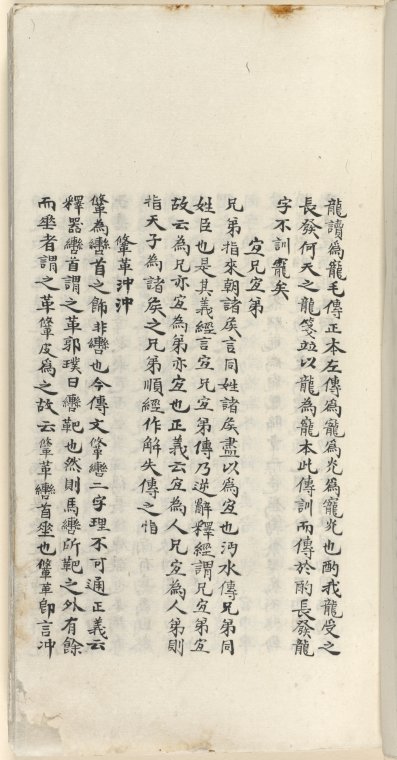 龍讀為龍毛傳正本左傳為寵為光為寵光也酌我龍受之
長發何天之龍箋竝以龍為寵本此傳訓而傳於酌長發龍
字不訓寵矣
宜兄宜弟
兄弟指來朝諸矦言同姓諸矦盡以為宜也沔水傳兄弟同
姓臣也是其義經言宜兄宜弟傳乃逆辭釋經謂兄宜弟宜
故云為兄亦宜為弟亦宜也正義云宜為人兄宜為人弟則
指天子為諸矦之兄弟順經作解失傳之恉
鞗革沖沖
鞗為轡首之飾非轡也今傳文鞗轡二字理不可通正義云
釋器轡首謂之革郭璞曰轡靶也然則馬轡所靶之外有餘
而垂者謂之革鞗皮為之故云鞗革轡首垂也鞗革卽言沖